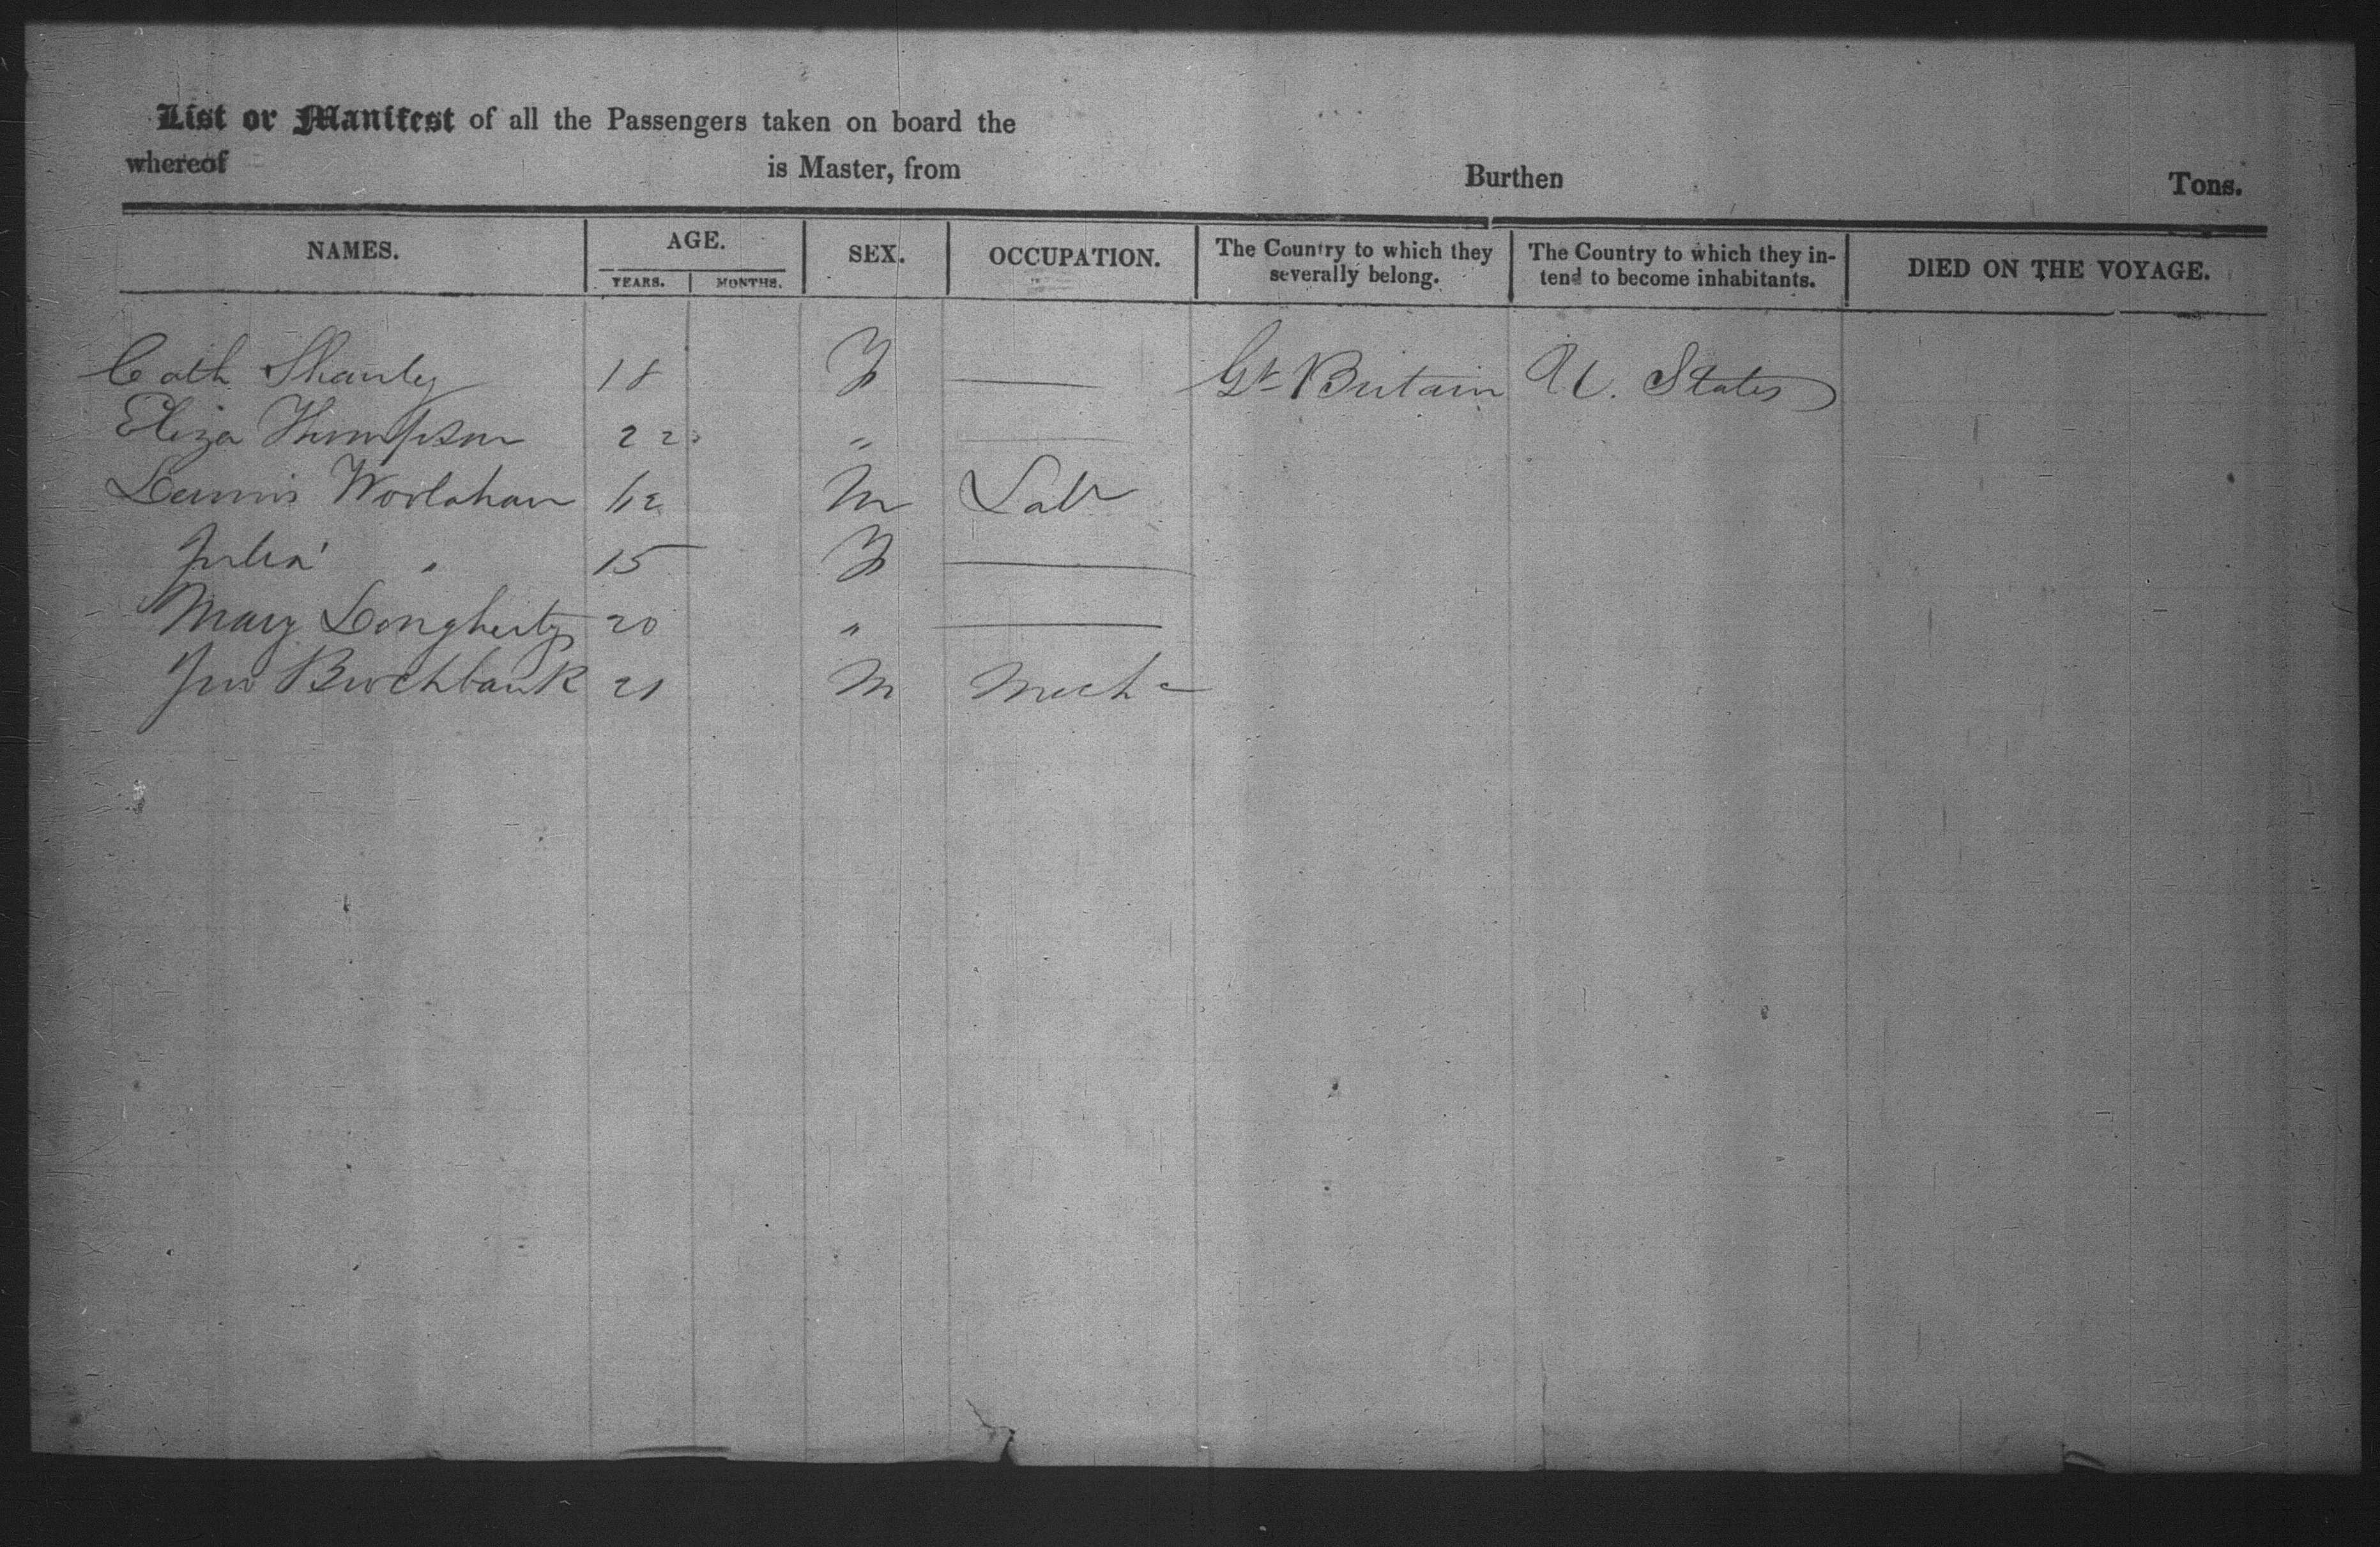 List or Manifest of all the Passengers taken on board the
whereof is Master, from Burthen Tons.
NAMES. AGE. YEARS. MONTHS. SEX. OCCUPATION. The Country to which they severally belong. The Country to which they intend to become inhabitants. DIED ON THE VOYAGE.
Cath Shanley 18 F — Gt Britain U. States
Eliza Thompson 22 " —
Dennis Woolahan M Labr
Julia " 15 F —
Mary Dougherty 20 " —
Jno Birchbank 21 M Mech